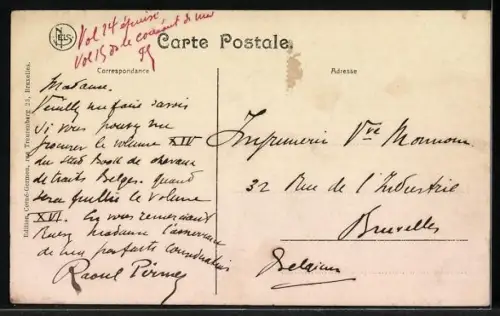 NELS
Vol 14 épuisé
Vol 15 de le courant de mai
Carte Postale.
Correspondance
Adresse
Madame.
Veuillez me faire savoir
si vous pouvez me
procurer le volume XIV
du stud Book de chevaux
de traits Belges. Quand
sera publié le volume
XVI. En vous remerciant
Madame l'assurance
de ma parfaite considération
Raoul
Imprimerie Vve Monnom
32 Rue de l'Industrie
Bruxelles
Belgique